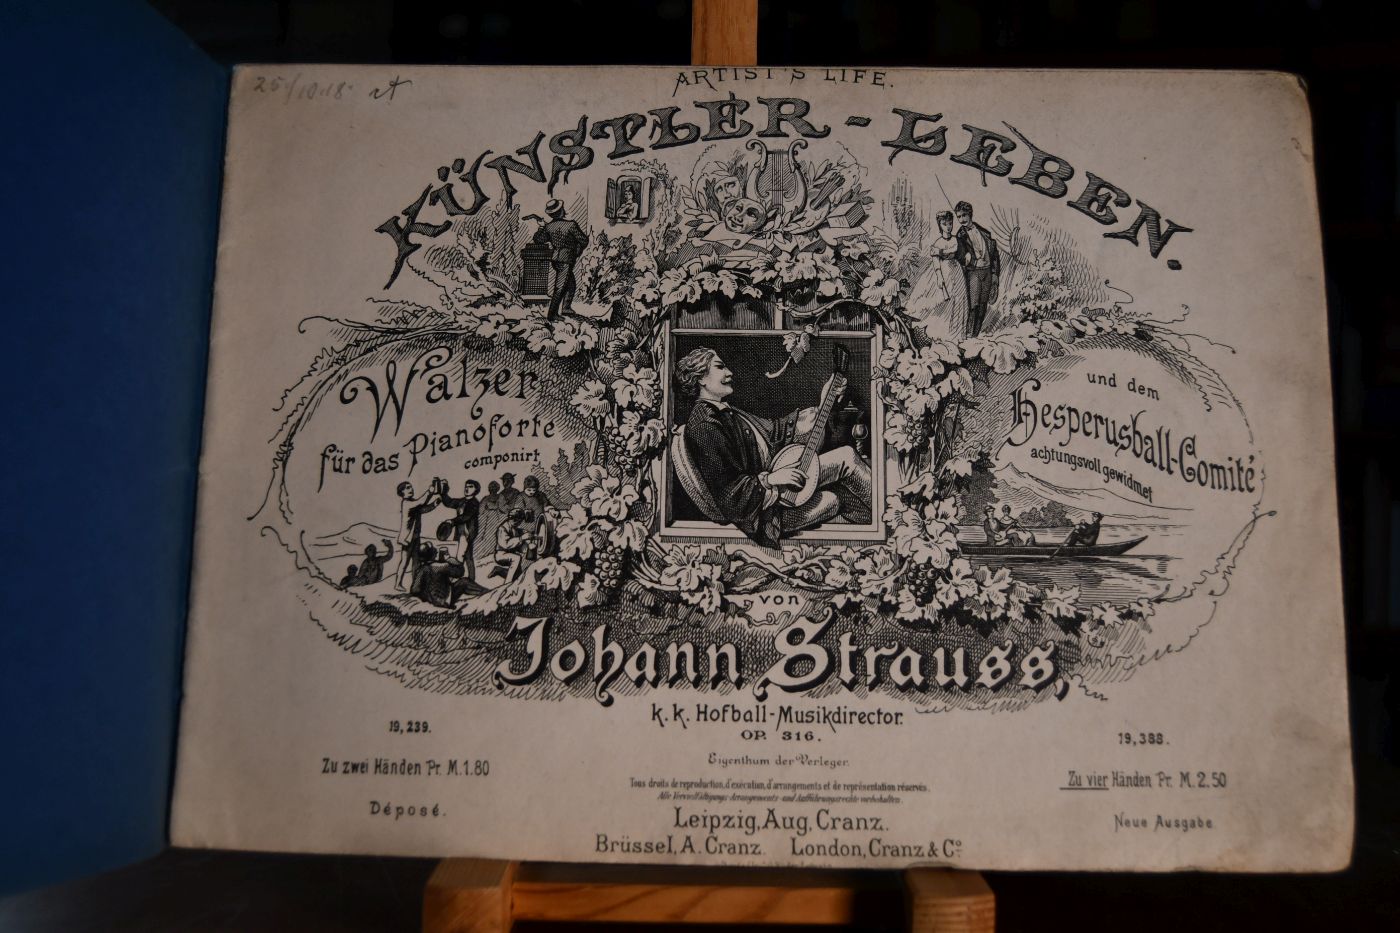 25/10.18.
ARTIST'S LIFE.
KÜNSTLER-LEBEN.
Walzer
für das Pianoforte
componirt
und dem
Hesperusball-Comité
achtungsvoll gewidmet
von
Johann Strauss,
k. k. Hofball-Musikdirector.
OP. 316.
19,239.
Zu zwei Händen Pr. M. 1.80
Déposé.
19,388.
Zu vier Händen Pr. M. 2.50
Neue Ausgabe
Eigenthum der Verleger.
Tous droits de reproduction, d'exécution, d'arrangements et de représentation réservés.
Alle Vervielfältigungs-Arrangements- und Aufführungsrechte vorbehalten.
Leipzig, Aug. Cranz.
Brüssel, A. Cranz. London, Cranz & Co.